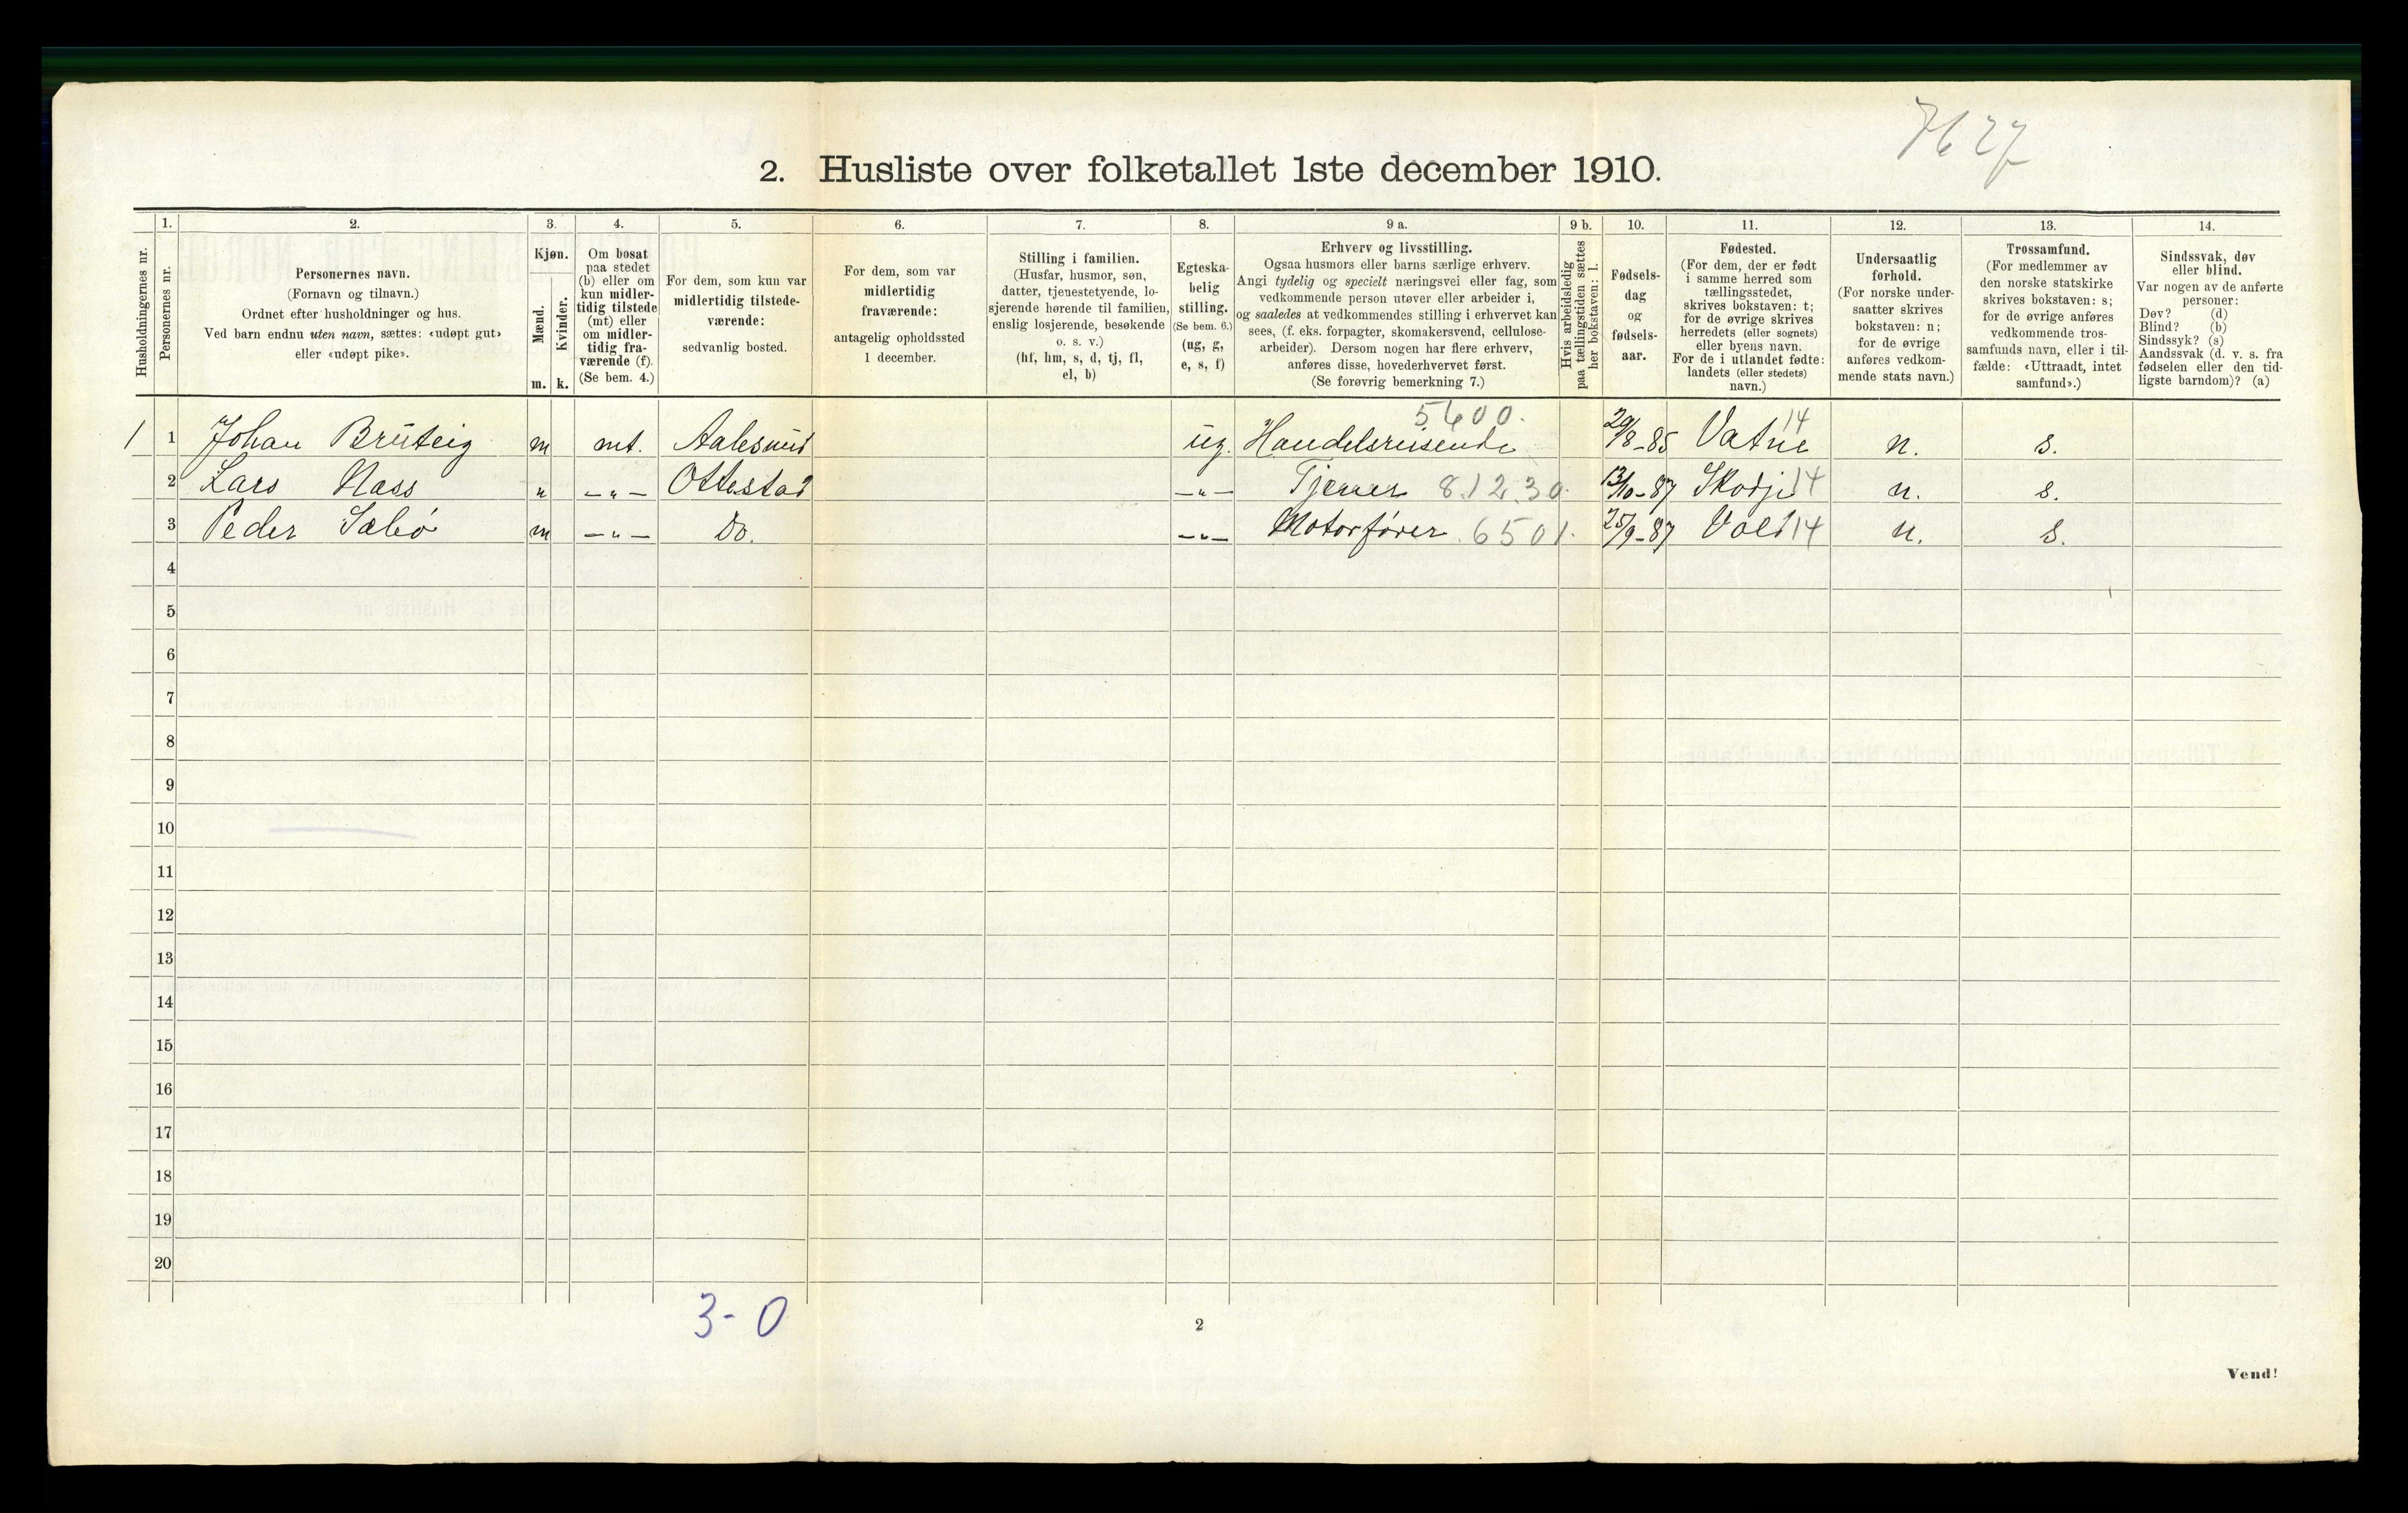 7627
2. Husliste over folketallet 1ste december 1910.
Husholdningernes nr.
1.
Personernes nr.
2.
Personernes navn.
(Fornavn og tilnavn.)
Ordnet efter husholdninger og hus.
Ved barn endnu uten navn, sættes: «udøpt gut»
eller «udøpt pike».
3.
Kjøn.
Mænd.
m.
Kvinder.
k.
4.
Om bosat
paa stedet
(b) eller om
kun midler-
tidig tilstede
(mt) eller
om midler-
tidig fra-
værende (f).
(Se bem. 4.)
5.
For dem, som kun var
midlertidig tilstede-
værende:
sedvanlig bosted.
6.
For dem, som var
midlertidig
fraværende:
antagelig opholdssted
1 december.
7.
Stilling i familien.
(Husfar, husmor, søn,
datter, tjenestetyende, lo-
sjerende hørende til familien,
enslig losjerende, besøkende
o. s. v.)
(hf, hm, s, d, tj, fl,
el, b)
8.
Egteska-
belig
stilling.
(Se bem. 6.)
(ug, g,
e, s, f)
9 a.
Erhverv og livsstilling.
Ogsaa husmors eller barns særlige erhverv.
Angi tydelig og specielt næringsvei eller fag, som
vedkommende person utøver eller arbeider i,
og saaledes at vedkommendes stilling i erhvervet kan
sees, (f. eks. forpagter, skomakersvend, cellulose-
arbeider). Dersom nogen har flere erhverv,
anføres disse, hovederhvervet først.
(Se forøvrig bemerkning 7.)
9 b.
Hvis arbeidsledig
paa tællingstiden sættes
her bokstaven: l.
10.
Fødsels-
dag
og
fødsels-
aar.
11.
Fødested.
(For dem, der er født
i samme herred som
tællingsstedet,
skrives bokstaven: t;
for de øvrige skrives
herredets (eller sognets)
eller byens navn.
For de i utlandet fødte:
landets (eller stedets)
navn.)
12.
Undersaatlig
forhold.
(For norske under-
saatter skrives
bokstaven: n;
for de øvrige
anføres vedkom-
mende stats navn.)
13.
Trossamfund.
(For medlemmer av
den norske statskirke
skrives bokstaven: s;
for de øvrige anføres
vedkommende tros-
samfunds navn, eller i til-
fælde: «Uttraadt, intet
samfund».)
14.
Sindssvak, døv
eller blind.
Var nogen av de anførte
personer:
Døv? (d)
Blind? (b)
Sindssyk? (s)
Aandssvak (d. v. s. fra
fødselen eller den tid-
ligste barndom)? (a)
5600.
1 1 Johan Brúteig m mt. Aalesund ug. Handelsreisende 29/8-85 Vatne 14 n. s.
2 Lars Nass " -"- Ottestad -"- Tjener 8.12.30. 13/10-87 Skodje 14 n. s.
3 Peder Sæbø m -"- Do. -"- Motorfører. 6501. 25/9-87 Vold 14 n. s.
4
5
6
7
8
9
10
11
12
13
14
15
16
17
18
19
20
3-0
2
Vend!